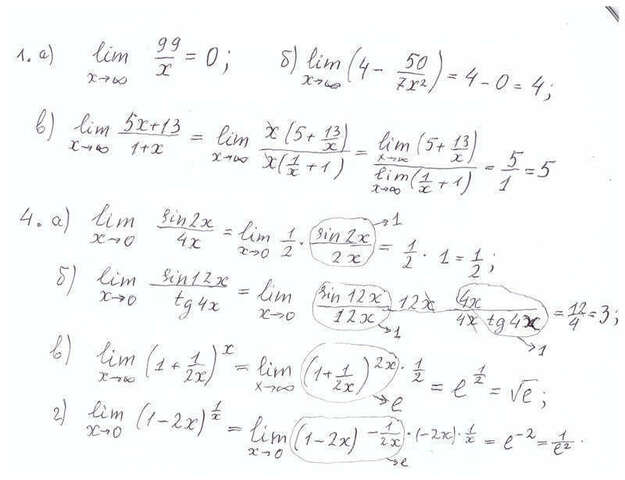 1. а) lim x→∞ 99/x = 0; б) lim x→∞ (4 - 50/7x²) = 4 - 0 = 4;
в) lim x→∞ (5x+13)/(1+x) = lim x→∞ x(5+13/x)/x(1/x+1) = lim x→∞ (5+13/x)/lim x→∞ (1/x+1) = 5/1 = 5
4. а) lim x→0 sin2x/4x = lim x→0 1/2 · sin2x/2x →1 = 1/2 · 1 = 1/2;
б) lim x→0 sin12x/tg4x = lim x→0 sin12x/12x →1 · 12x/4x · 4x/tg4x →1 = 12/4 = 3;
в) lim x→∞ (1+1/2x)^x = lim x→∞ (1+1/2x)^2x →e · 1/2 = e^1/2 = √e;
г) lim x→0 (1-2x)^1/x = lim x→0 (1-2x)^-1/2x →e · (-2x) · 1/x = e^-2 = 1/e².